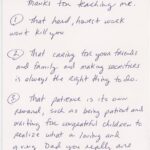 Thanks for teaching me.
① That hard, honest work
won't kill you
② That caring for your friends
and family and making sacrifices
is always the right thing to do.
③ That patience is its own
reward, such as being patient and
waiting for ungrateful children to
realize what a loving and
Dad you really are